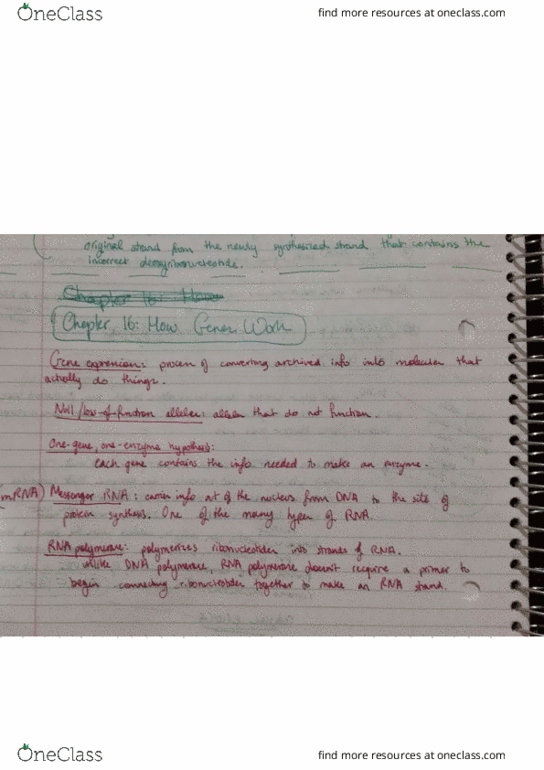 OneClass
find more resources at oneclass.com
original strand from the newly synthesized strand that contains the
incorrect deoxyribonucleotide.
Chapter 16: How
Chapter 16: How Genes Work
Gene expression: process of converting archived info into molecules that
actually do things.
Null/loss-of-function alleles: alleles that do not function.
One-gene, one-enzyme hypothesis:
each gene contains the info needed to make an enzyme.
(mRNA) Messenger RNA: carries info out of the nucleus from DNA to the site of
protein synthesis. One of the many types of RNA.
RNA polymerase: polymerizes ribonucleotides into strands of RNA.
unlike DNA polymerase, RNA polymerase doesn't require a primer to
begin connecting ribonucleotides together to make an RNA strand.
OneClass
find more resources at oneclass.com